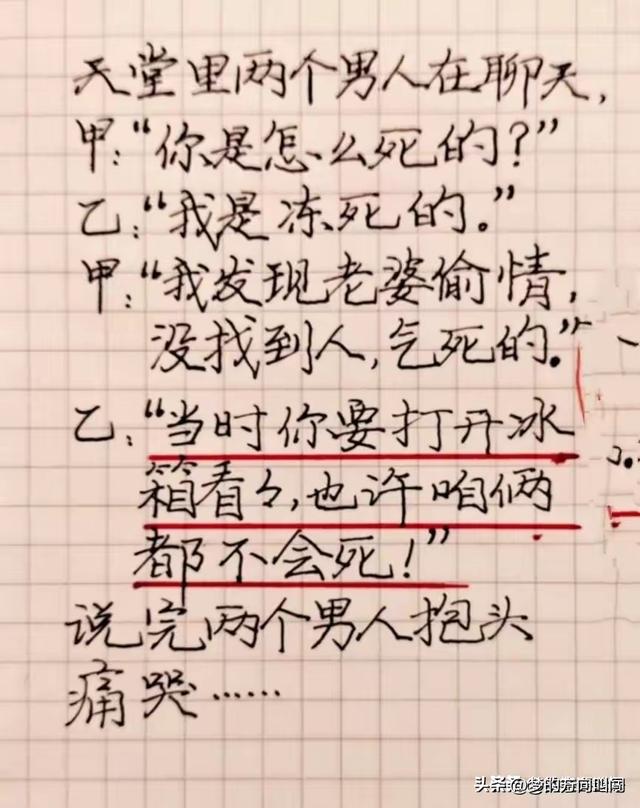 天堂里两个男人在聊天,
甲:“你是怎么死的?”
乙:“我是冻死的。”
甲:“我发现老婆偷情,
没找到人,气死的。”
乙:“当时你要打开冰
箱看々,也许咱俩
都不会死!”
说完两个男人抱头
痛哭……